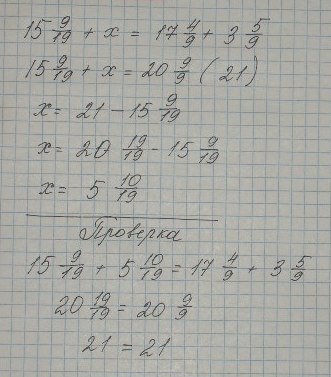 15 9/19 + x = 17 4/9 + 3 5/9
15 9/19 + x = 20 9/9 (21)
x = 21 - 15 9/19
x = 20 19/19 - 15 9/19
x = 5 10/19
Проверка
15 9/19 + 5 10/19 = 17 4/9 + 3 5/9
20 19/19 = 20 9/9
21 = 21